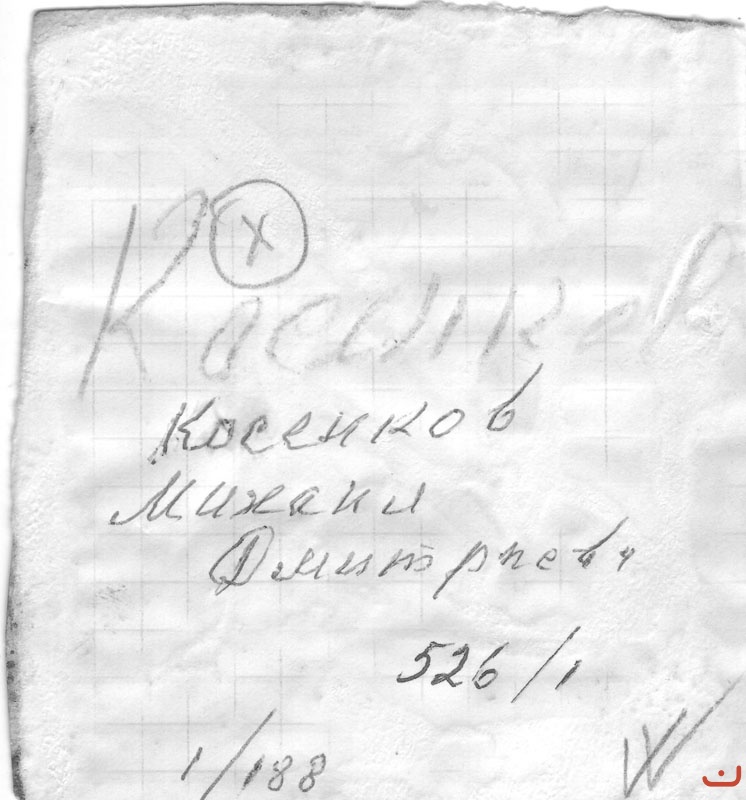 х
Косенков
Косенков
Михаил
Дмитриеви
526/1
1/188